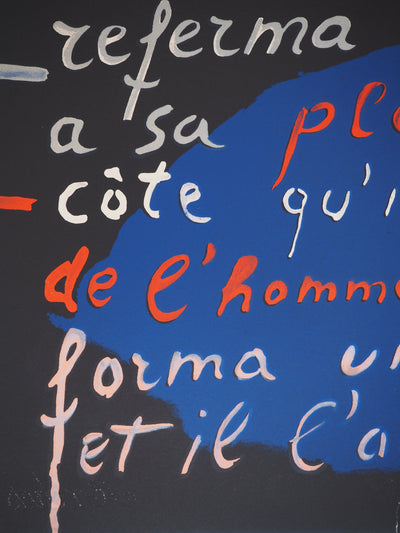 referma
a sa pl
côte qu'i
de l'homme
forma u
et il l'a